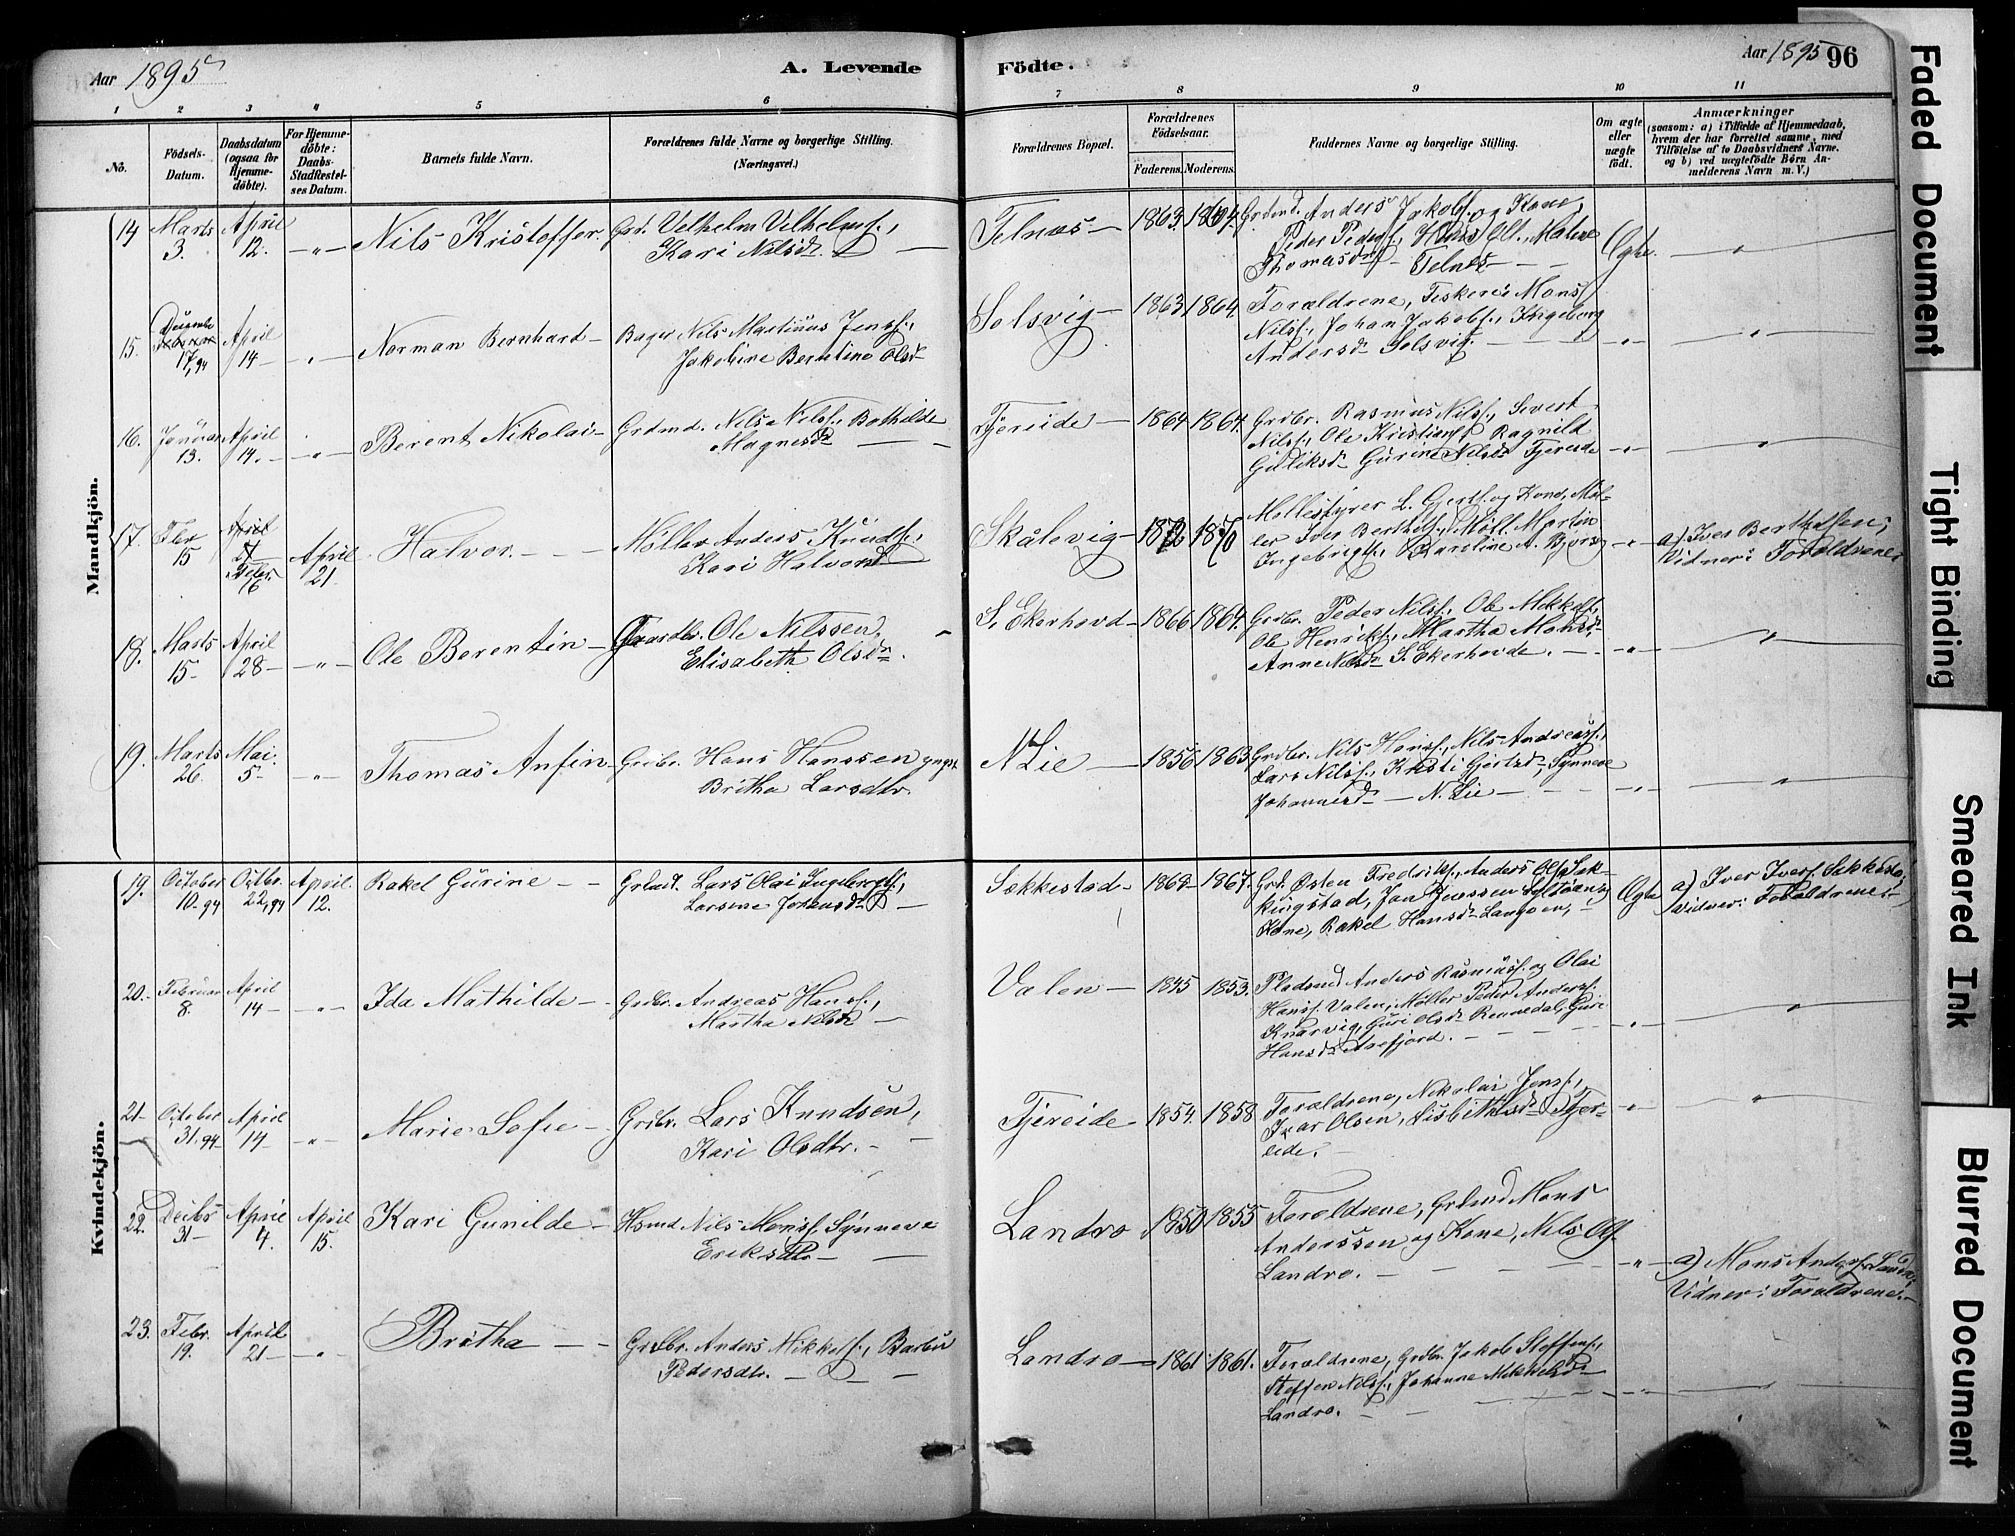 Aar 1895
A. Levende
Födte.
Aar 1895 96
1 2 3 4 5 6 7 8 9 10 11
No.
Födsels-Datum.
Daabsdatum (ogsaa for Hjemme-döbte).
For Hjemme-döbte: Daabs-Stadfæstel-ses Datum.
Barnets fulde Navn.
Forældrenes fulde Navne og borgerlige Stilling. (Næringsvei.)
Forældrenes Bopæl.
Forældrenes Födselsaar.
Faderens. Moderens.
Faddernes Navne og borgerlige Stilling.
Om ægte eller uægte födt.
Anmærkninger
(saasom: a) i Tilfælde af Hjemmedaab, hvem der har forrettet samme, med Tilföielse af to Daabsvidners Navne. og b) ved uægtefödte Börn An-melderens Navn m. V.)
Mandkjön.
14 Marts 3. April 12. -„- Nils Kristoffer. Grd. Velhelm Vilhelmsf.,
Kari Nilsd. Telnæs 1863. 1864. Grdmd. Anders Jakobsf. og Kone,
Peder Pedersf., Hans Ol., Malene
Thomasd. Telnes Ægte. „
15. December 17, 94 April 14 „ Norman Bernhard Bager Nils Martinus Jensf.,
Jakobine Berntine Olsd Solsvig 1863 1864. Forældrene, Fisker: Mons
Nilsf., Johan Jakobsf., Ingeborg
Andersd Solsvig. „ „
16. Januar 13. April 14. -„- Berent Nikolai Grdmd. Nils Nilsf., Bothilde
Magnesd Tjereide 1864 1864. Grdbr. Rasmus Nilsf., Sivert
Nilsf., Ole Kristiansf Ragnild
Gurine Nilsd Tjereide „ „
17. Febr 15 Febr. 16 April 21. Halvor. Møller Anders Knudsf.,
Kari Halvord Skålevig 1870 Møllestyrer L. Gertsf. og Kone, Møl-
ler Iver Berthelsf., Møll. Martin
Ingebrigtsf., Karoline A. „ a) Iver Berthelsen;
Vidner: Forældrene.
18. Marts 15 April 28 „ Ole Berentin Gaardbr. Ole Nilssen,
Elisabeth Olsdn. S. Ekerhovd 1866 1864. Grdbr. Peder Nilsf., Ole Mikkelsf.,
Ole Henriksf., Martha Monsd.
Anne Nilsd S. Ekerhovde. „ „
19. Marts 26. Mai. 5 „ Thomas Anfin Grdbr. Hans Hanssen yngst
Britha Larsdtr. N Lie 1856 1863 Grdbr. Nils Hansf., Nils Andreasf.,
Lars Nilsf., Kristi Gjertsd, Synneve
Johannesd N. Lie „ „
Kvindekjön.
19. October 10. 94 Octbr. 22, 94 April. 12. Rakel Gurine Lars Olai Ingebrigtsf.,
Larsine Johansd Sækkestad 1867. Grd. Østen Fredriksf., Anders Olsf. Sæk-
kingstad, Jan Jenssen
Kone, Rakel Hansd Langøen, Ægte a) Iver Iversf. Sækkesta,
Vidner: Forældrene
20. Februar 8. April 14 „ Ida Mathilde Grdbr. Andreas Hansf.,
Martha Nilsd Valen 1845 1853. Pladsmd Anders Rasmusf. og Olai
Hansf. Valen, Møller Peder Andersf.
Knarvig, Guri Olsd Rennedal, Guri
Hansd Arefjord. „ „
21 October 31. 94 April 14 „ Marie Sofie Grdbr. Lars Knudsen,
Kari Olsdtr. Tjereide 1854. 1858 Forældrene, Nikolai Jensf.,
Ivar Olsen, Tjer-
eide. „ „
22. Decbr 31 April 4. April 15. Kari Gunilde Hsmd Nils Monsf. Synneve
Eriksdtr Landro 1850 1855 Forældrene, Grdmd Mons
Anderssen og Kone, Nils Olsf.
Landro. „ a) Mons Andersf. Landro,
Vidner: Forældrene.
23. Febr. 19. April 21 „ Britha Grdbr. Anders Mikkelsf., Barbu
Pedersdtr. Landro 1861 1861. Forældrene, Grdbr. Jakob Steffensf.,
Steffen Nilsf., Johanne Mikkelsd
Landro. „ „
Faded Document
Tight Binding
Smeared Ink
Blurred Document